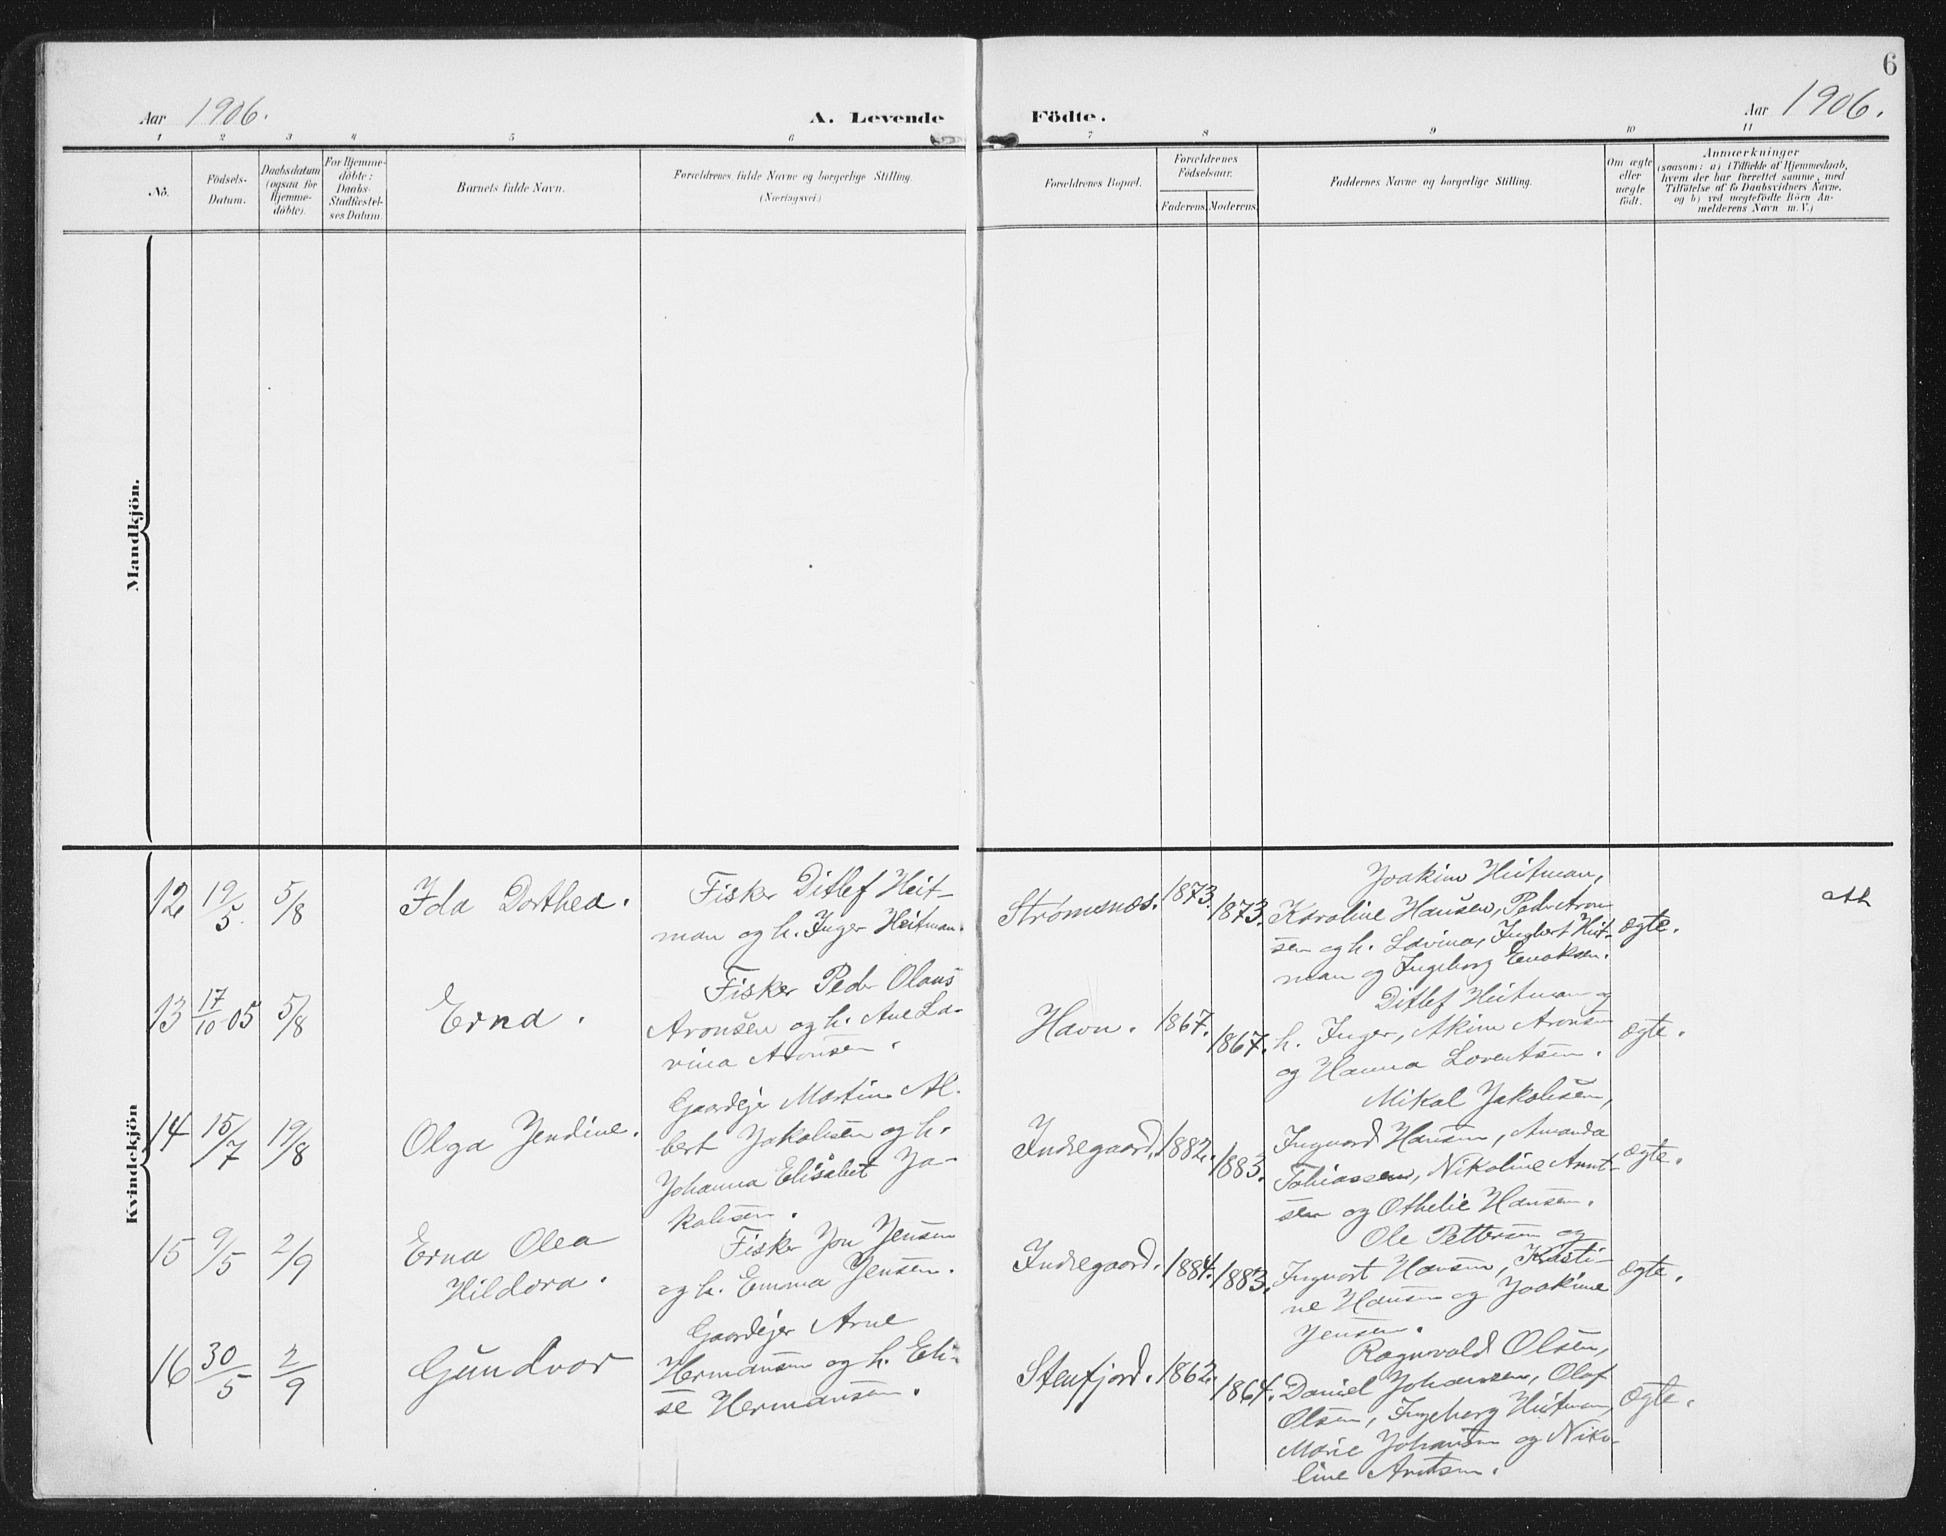 6
Aar 1906.
A. Levende
Födte.
Aar 1906.
1 2 3 4 5 6 7 8 9 10 11
No.
Födsels-
Datum.
Daabsdatum
(ogsaa for
Hjemme-
döbte).
For Hjemme-
döbte:
Daabs-
Stadfæstel-
ses Datum.
Barnets fulde Navn.
Forældrenes fulde Navne og borgerlige Stilling.
(Næringsvei)
Forældrenes Bopæl.
Forældrenes
Födselsaar.
Faderens.
Moderens.
Faddernes Navne og borgerlige Stilling.
Om ægte
eller
uægte
födt.
Anmærkninger
(saasom: a) i Tilfælde af Hjemmedaab,
hvem der har forrettet samme, med
Tilföielse af to Daabsvidners Navne,
og b) ved uægtefödte Börn An-
melderens Navn m. V.)
Mandkjön.
Kvindekjön
12
19/5.
5/8
Ida Dorthea.
Fisker Ditlef Heit-
man og h. Inger Heitman.
Strømsnæs.
1873.
1873.
Joakim Heitman,
Karoline Hansen, Peder Aron-
sen og h. Lavina, Ingbert Heit-
man og Ingeborg Enoksen.
ægte.
13
17/10-05
5/8
Erna.
Fisker Peder Olaus
Aronsen og h. Ane La-
vina Aronsen.
Havn.
1867.
1867.
Ditlef Heitman og
h. Inger, Akim Aronsen
og Hanna Lorentsen.
ægte.
14
15/7
19/8
Olga Jendine.
Gaardejer Martin Al-
bert Jakobsen og h.
Johanna Elisabet Ja-
kobsen.
Indregaard.
1882.
1883.
Mikal Jakobsen,
Ingvard Hansen, Amanda
Tobiassen, Nikoline Arnt-
sen og Othelie Hansen.
ægte.
15
9/5
2/9
Erna Olea
Hildora.
Fisker Jon Jensen
og h. Emma Jensen.
Indregaard.
1884.
1883.
Ole Pettersen og
Ingvart Hansen, Kristi-
ne Hansen og Joakime
Jensen.
ægte.
16
30/5
2/9
Gundvor
Gaardejer Arne
Hermansen og h. Eli-
se Hermansen.
Stenfjord.
1862.
1864.
Ragnvald Olsen,
Daniel Johansen, Olaf
Olsen, Ingeborg Heitman,
Marie Johansen og Niko-
line Arntsen.
ægte.